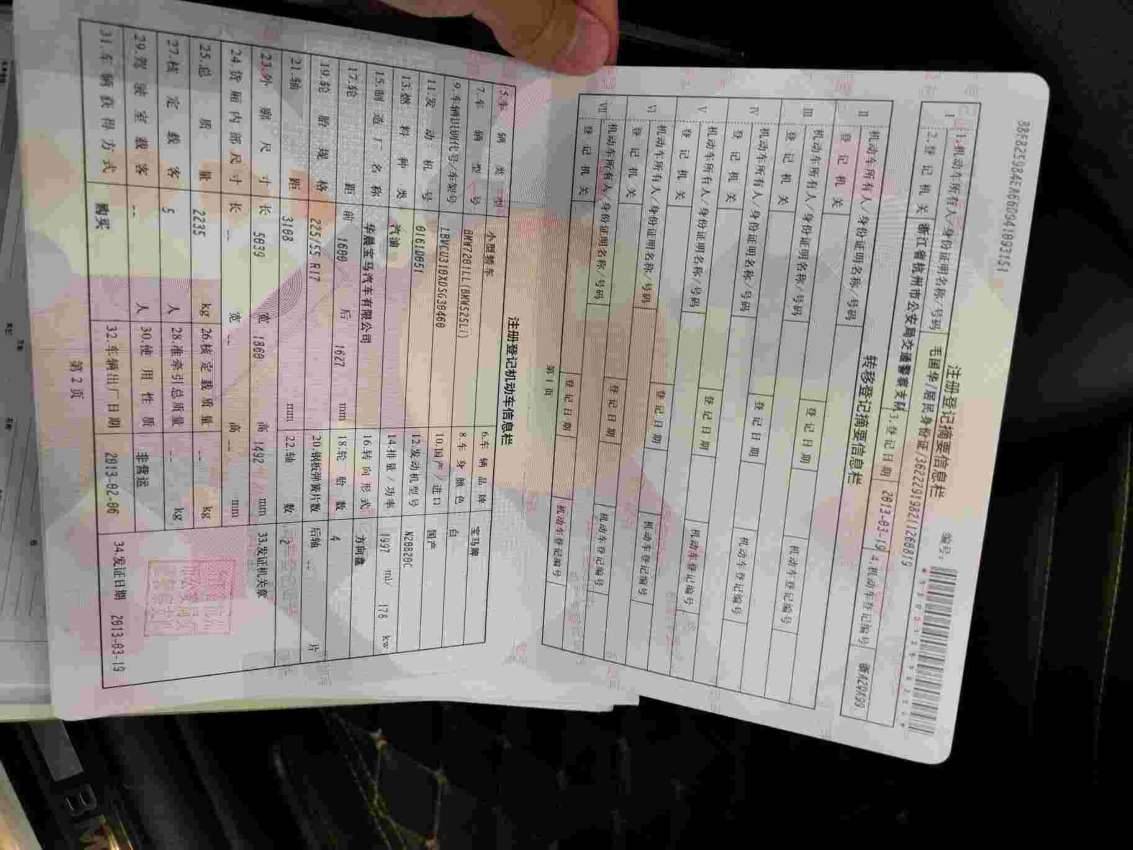 33EB25984EA660941893151
注册登记摘要信息栏
编号:
I 1.机动车所有人/身份证明名称/号码 毛国华/居民身份证/362229198211260819
2.登记机关 浙江省杭州市公安局交通警察支队 3.登记日期 2013-03-19 4.机动车登记编号
转移登记摘要信息栏
II 机动车所有人/身份证明名称/号码
登记机关 登记日期 机动车登记编号
III 机动车所有人/身份证明名称/号码
登记机关 登记日期 机动车登记编号
IV 机动车所有人/身份证明名称/号码
登记机关 登记日期 机动车登记编号
V 机动车所有人/身份证明名称/号码
登记机关 登记日期 机动车登记编号
VI 机动车所有人/身份证明名称/号码
登记机关 登记日期 机动车登记编号
VII 机动车所有人/身份证明名称/号码
登记机关 登记日期 机动车登记编号
第1页
注册登记机动车信息栏
5.车辆类型 小型轿车 6.车辆品牌 宝马牌
7.车辆型号 BMW7201LL(BMW525Li) 8.车身颜色 白
9.车辆识别代号/车架号 LBVCU310XDSG38460 10.国产/进口 国产
11.发动机号 0161D051 12.发动机型号 N20B20C
13.燃料种类 汽油 14.排量/功率 1997 ml/ 176 kw
15.制造厂名称 华晨宝马汽车有限公司 16.转向形式 方向盘
17.轮距 前 1600 后 1627 mm 18.轮胎数 4
19.轮胎规格 225/55 R17 20.钢板弹簧片数 后轴 -- 片
21.轴距 3108 mm 22.轴数 2
23.外廓尺寸 长 5039 宽 1860 高 1492 mm 33.发证机关章
24.货厢内部尺寸 长 -- 宽 -- 高 -- mm
25.总质量 2235 kg 26.核定载质量 -- kg
27.核定载客 5 人 28.准牵引总质量 -- kg
29.驾驶室载客 -- 人 30.使用性质 非营运
31.车辆获得方式 购买 32.车辆出厂日期 2013-02-06 34.发证日期 2013-03-19
第2页
BM